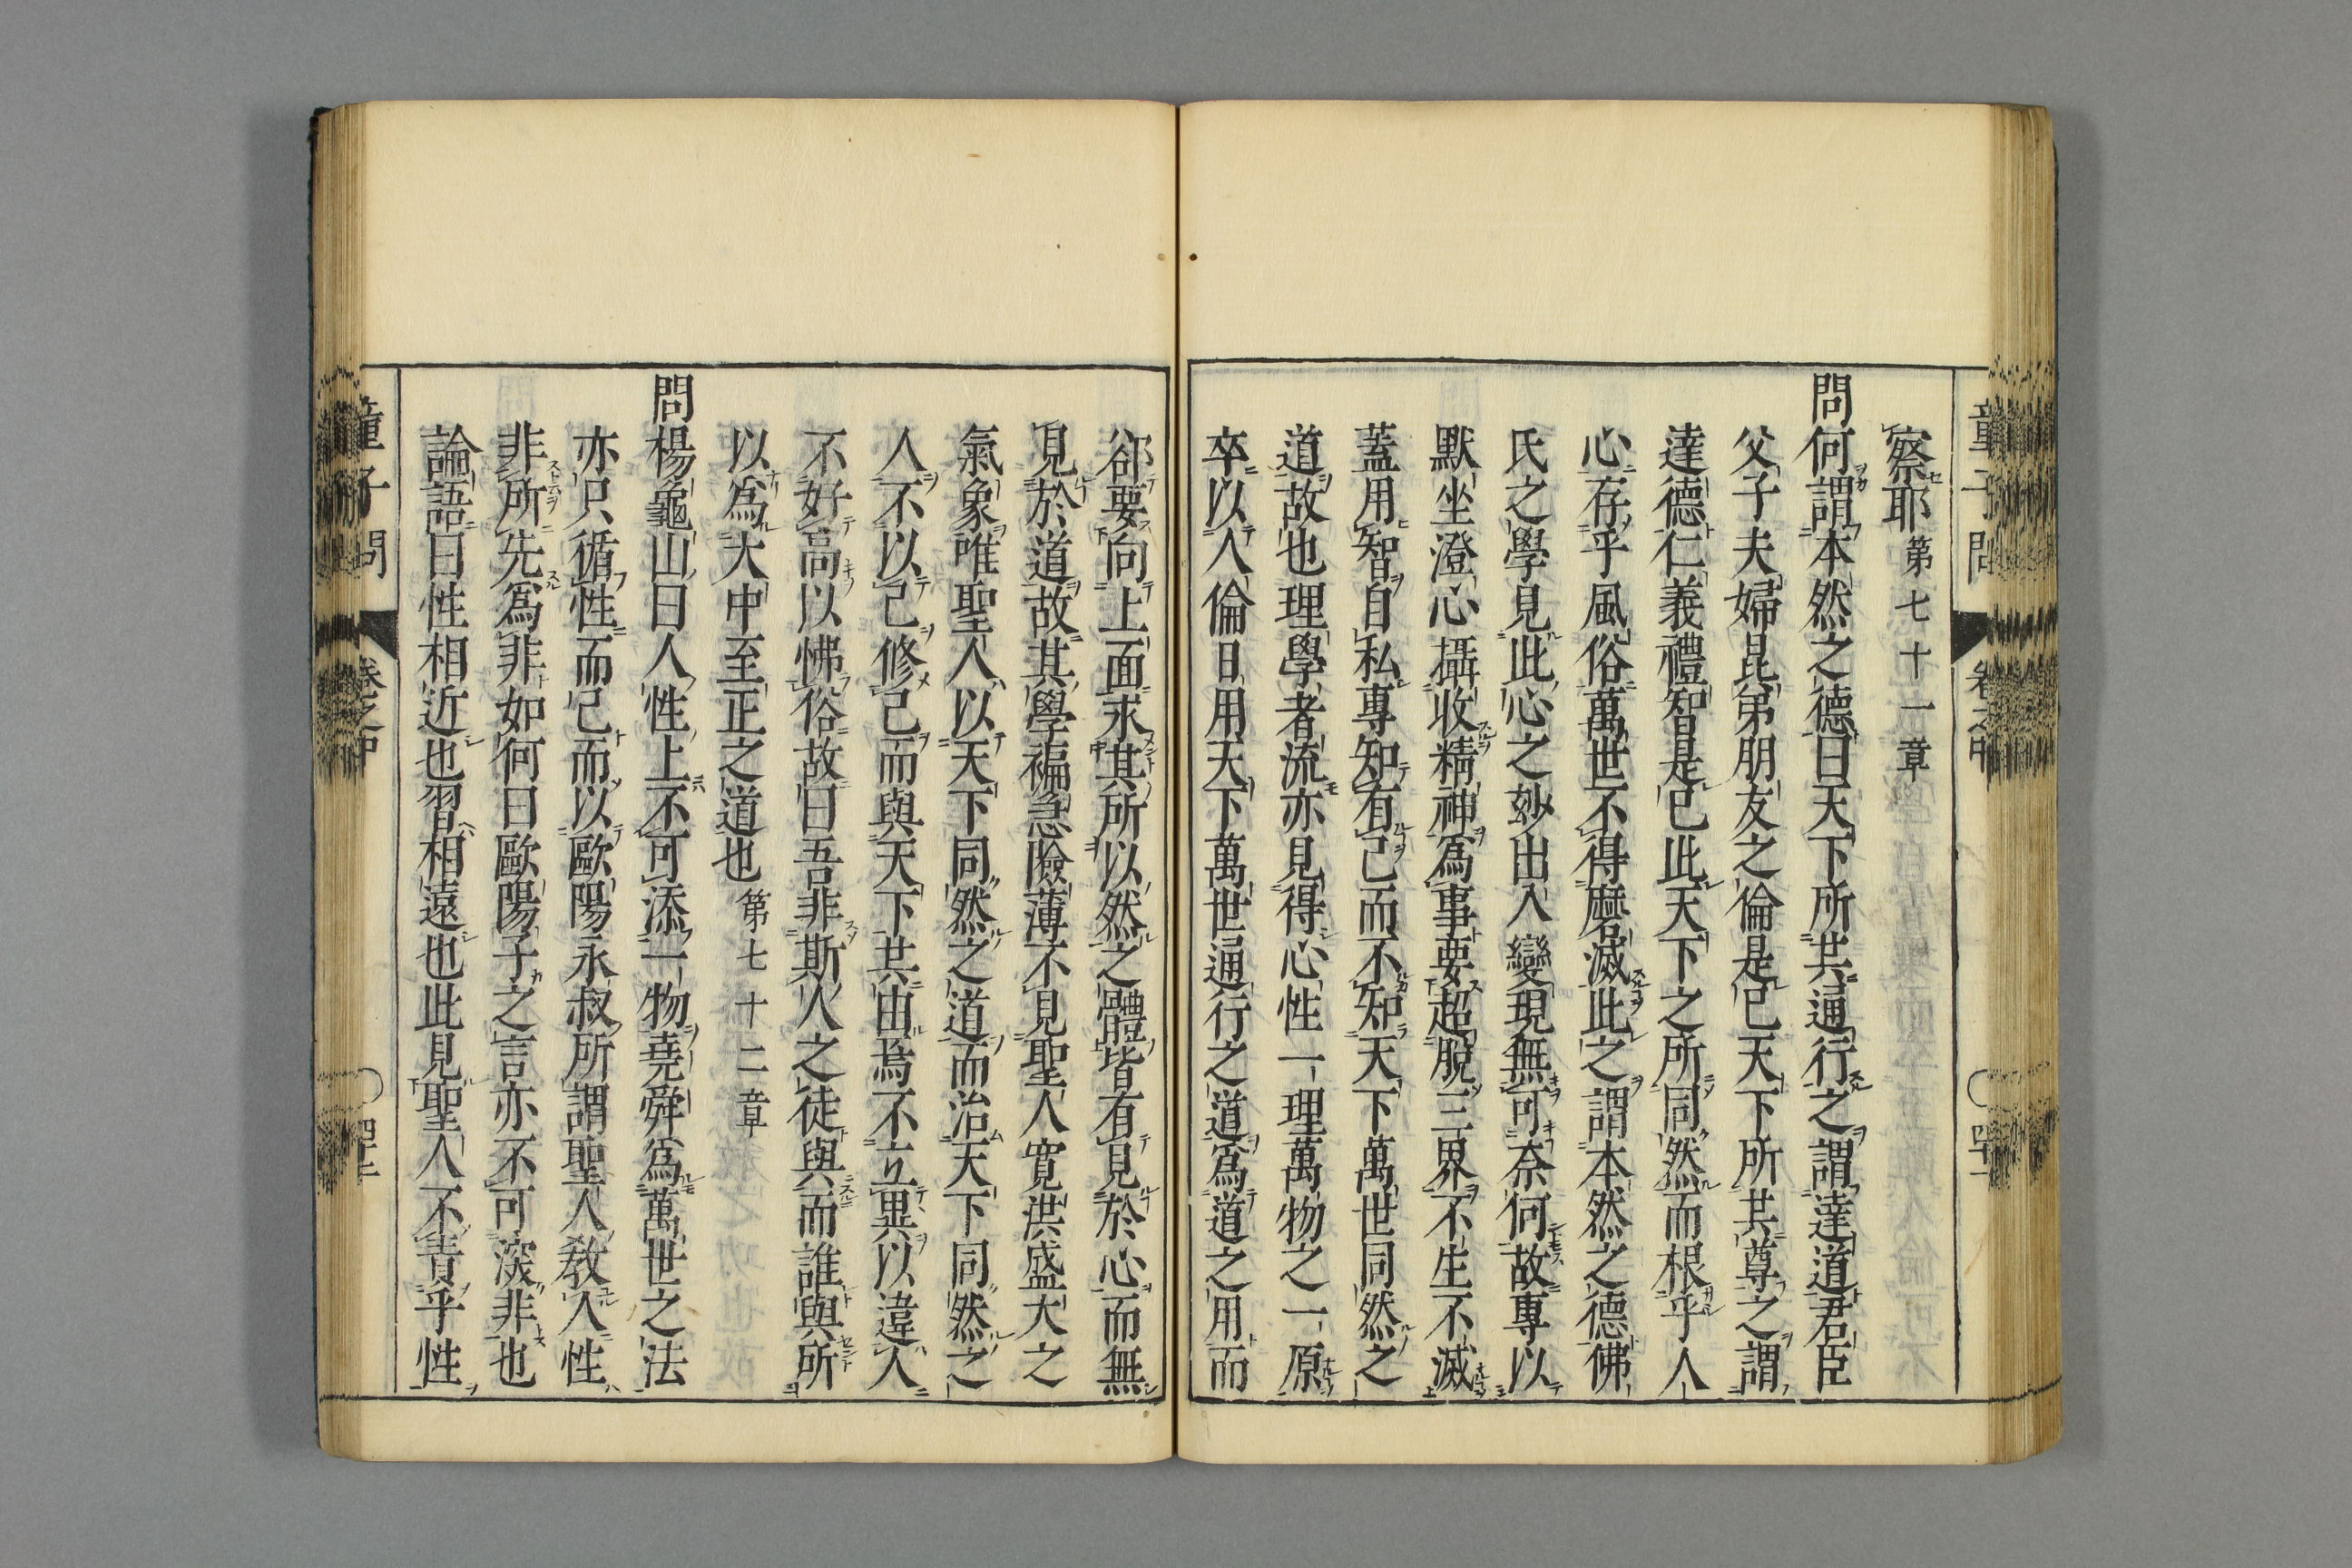 童子問 卷之中
察耶 第七十一章
問何謂本然之德曰天下所共通行之謂達道君臣
父子夫婦昆弟朋友之倫是已天下所共尊之謂
達德仁義禮智是已此天下之所同然而根乎人
心存乎風俗萬世不得磨滅此之謂本然之德佛
氏之學見此心之妙出入變現無可奈何故專以
默坐澄心攝收精神爲事要超脫三界不生不滅
蓋用智自私專知有己而不知天下萬世同然之
道故也理學者流亦見得心性一理萬物之一原
卒以人倫日用天下萬世通行之道爲道之用而
卻要向上面求其所以然之體皆有見於心而無
見於道故其學褊急險薄不見聖人寬洪盛大之
氣象唯聖人以天下同然之道而治天下同然之
人不以己修己而與天下共由焉不立異以違人
不好高以怫俗故曰吾非斯人之徒與而誰與所
以爲大中至正之道也 第七十二章
問楊龜山曰人性上不可添一物堯舜爲萬世之法
亦只循性而已而以歐陽永叔所謂聖人敎人性
非所先爲非如何曰歐陽子之言亦不可深非也
論語曰性相近也習相遠也此見聖人不責乎性
童子問 卷之中